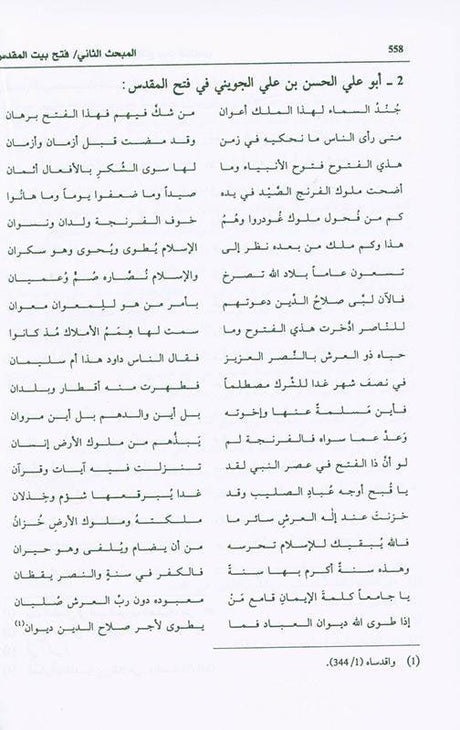 558 المبحث الثاني/ فتح بيت المقدس
2 ـ أبو علي الحسن بن علي الجويني في فتح المقدس :
جُنْدُ السماء لهذا الملك أعوان من شكَّ فيهم فهذا الفتح برهان
متى رأى الناس ما نحكيه في زمن وقد مضت قبل أزمان وأزمان
هذي الفتوح فتوح الأنبياء وما لها سوى الشكر بالأفعال أثمان
أضحت ملوك الفرنج الصِّيْد في يده صيداً وما ضعفوا يوماً وما هانُوا
كم من فُحول ملوك غُودروا وهُمُ خوف الفرنجة ولدان ونسوان
هذا وكم ملك من بعده نظر إلى الإسلام يُطوى ويُحوى وهو سكران
تسعون عاماً بلاد الله تصرخ والإسلام نُصَّاره صُمٌّ وعُميان
فالآن لبَّى صلاحُ الدِّين دعوتهم بأمر من هو للمعوان معوان
للنَّاصر ادُّخرت هذي الفتوح وما سمت لها هِمَمُ الأملاك مُذ كانوا
حباه ذو العرش بالنَّصر العزيز فقال الناس داود هذا أم سليمان
في نصف شهر غدا للشِّرك مصطلماً فطهرت منه أقطار وبلدان
فأين مَسلمةٌ عنها وإخوته بل أين والدهم بل أين مروان
وَعدْ عما سواه فالفرنجة لم يَبذُّهم من ملوك الأرض إنسان
لو أنَّ ذا الفتح في عصر النبي لقد تنزلت فيه آيات وقرآن
يا قُبح أوجه عُبادِ الصليب وقد غدا يُبرقعها شؤم وخذلان
خزنتَ عند إله العرش سائر ما ملكتهُ وملوك الأرض خُزانُ
فالله يُبقيك للإسلام تحرسه من أن يضام ويُلفى وهو حيران
وهذه سنةٌ أكرم بها سنةً فالكفر في سنةٍ والنصر يقظان
يا جامعاً كلمةَ الإيمان قامع مَنْ معبوده دون ربِّ العرش صُلبان
إذا طوى الله ديوان العباد فما يطوى لأجر صلاح الدين ديوان(1)
(1) واقدساه (344/1).